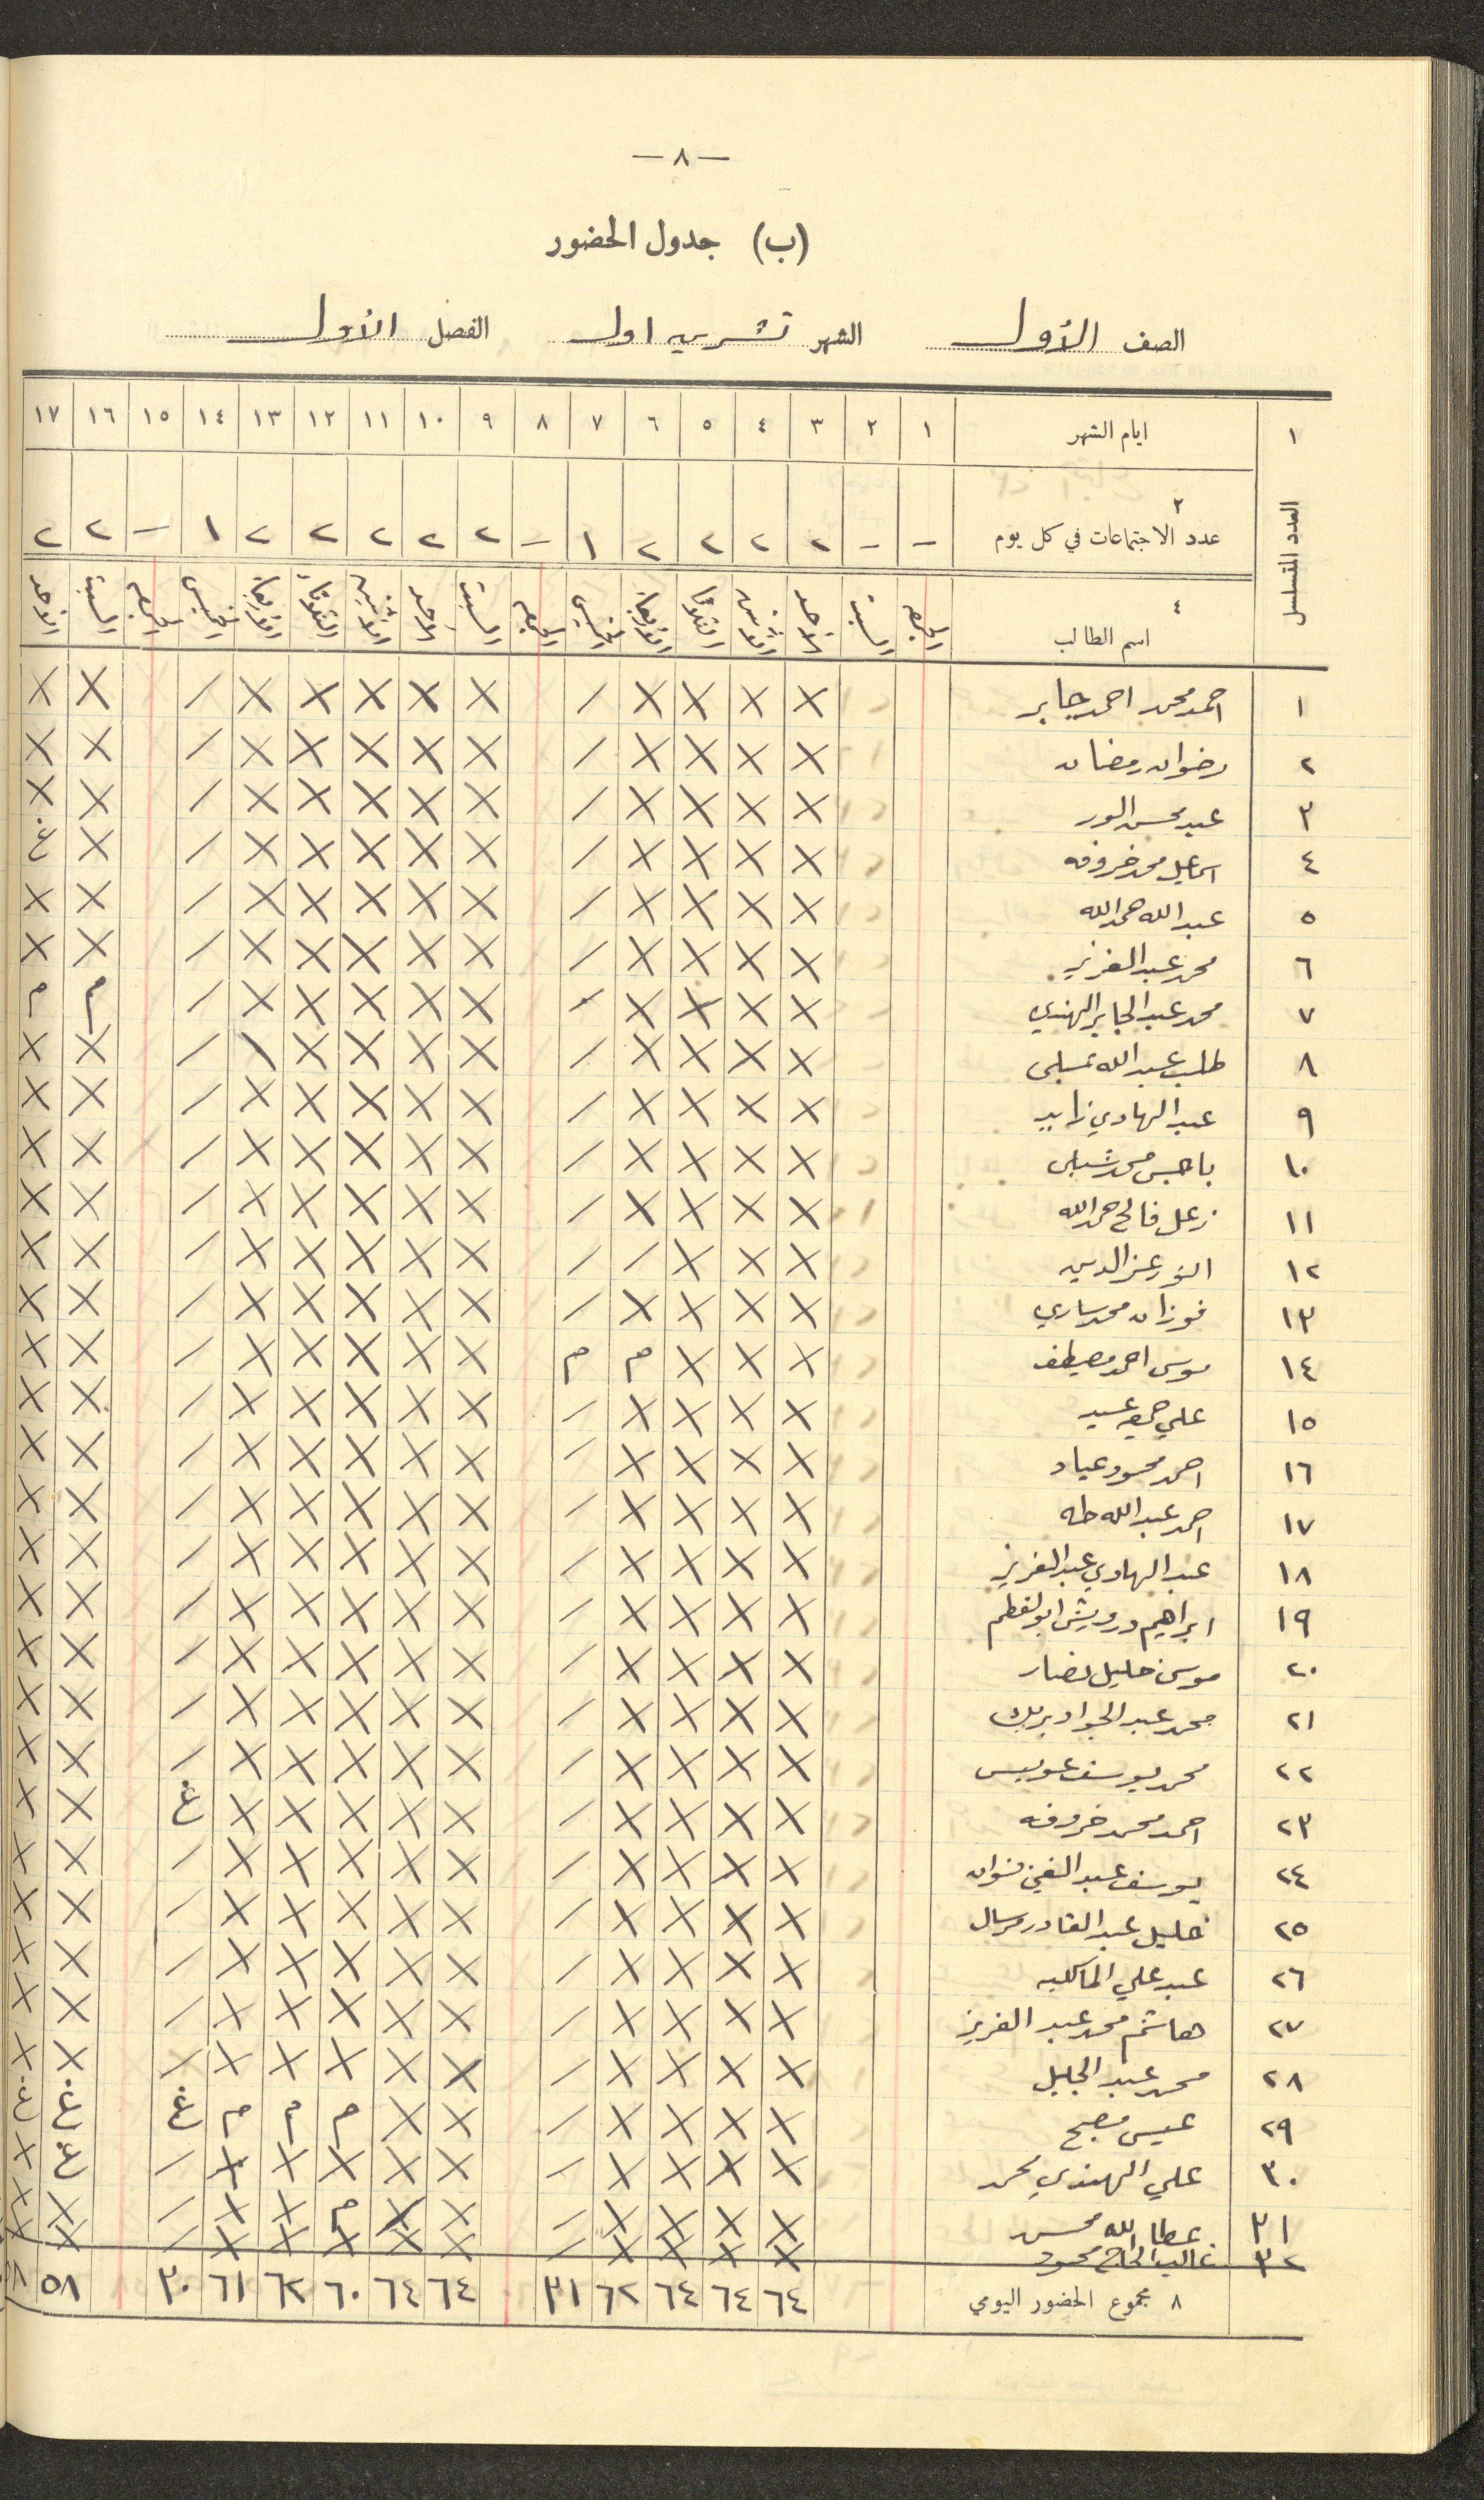 — ٨ —
(ب) جدول الحضور
الصف الأول الشهر تشرين اول الفصل الأول
١ ايام الشهر ١ ٢ ٣ ٤ ٥ ٦ ٧ ٨ ٩ ١٠ ١١ ١٢ ١٣ ١٤ ١٥ ١٦ ١٧
العدد المتسلسل
٢
عدد الاجتماعات في كل يوم — — ٢ ٢ ٢ ٢ ١ — ٢ ٢ ٢ ٢ ٢ ١ — ٢ ٢
٤
اسم الطالب الجمعه السبت الاحد الاثنين الثلاثاء الاربعاء الخميس الجمعه السبت الاحد الاثنين الثلاثاء الاربعاء الخميس الجمعه السبت الاحد
١ احمد محمد احمد جابر X X X X / X X X X X / X X
٢ رضوان رمضان X X X X / X X X X X / X X
٣ عبد محسن X X X X / X X X X X / X X
٤ اسماعيل محمد خروفه X X X X / X X X X X / X غ
٥ عبد الله حمد الله X X X X / X X X X X / X X
٦ محمد عبد العزيز X X X X / X X X X X / X X
٧ محمد عبد الجابر الهندي X X X X / X X X X X / م م
٨ طلب عبد الله X X X X / X X X X \ / X X
٩ عبد الهادي زايد X X X X / X X X X X / X X
١٠ محمد شبلي X X X X / X X X X X / X X
١١ زعل فالح حمد الله X X X X / X X X X X / X X
١٢ عز الدين X X X / / X X X X X / X X
١٣ فوزان محمد ساري X X X X / X X X X X / X X
١٤ موسى احمد مصطفى X X X م م X X X X X / X X
١٥ علي جمعه عيد X X X X / X X X X X / X X
١٦ احمد محمود عياد X X X X / X X X X X / X X
١٧ احمد عبد الله طه X X X X / X X X X X / X X
١٨ عبد الهادي عبد العزيز X X X X / X X X X X / X X
١٩ ابراهيم درويش X X X X / X X X X X / X X
٢٠ موسى خليل نصار X X X X / X X X X X / X X
٢١ محمد عبد الجواد X X X X / X X X X X / X X
٢٢ محمد يوسف عويس X X X X / X X X X X / X X
٢٣ احمد محمد خروفه X X X X / X X X X X غ X X
٢٤ يوسف عبد الغني X X X X / X X X X X / X X
٢٥ خليل عبد القادر X X X X / X X X X X / X X
٢٦ عبد علي X X X X / X X X X X / X X
٢٧ هاشم محمد عبد العزيز X X X X / X X X X X / X X
٢٨ محمد عبد الجليل X X X X / X X X X X / X X
٢٩ عيسى مصبح X X X X / X X م م م غ غ غ
٣٠ علي الهندي محمد X X X X / X X X X X / غ X
٣١ عطا الله محسن X X X X / X X م X X / X X
٣٢ محمود X X X X / X X X X X / X X
٨ مجموع الحضور اليومي ٦٤ ٦٤ ٦٤ ٦٢ ٣١ ٦٤ ٦٤ ٦٠ ٦٢ ٦١ ٣٠ ٥٨